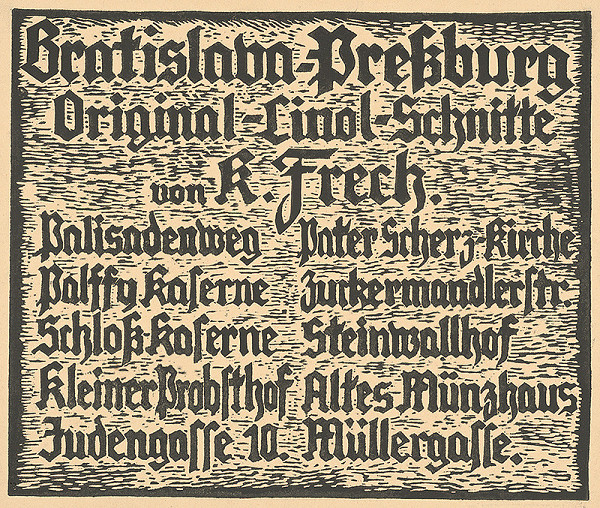 Bratislava-Preßburg
Original-Linol-Schnitte
von K. Frech.
Palisadenweg Pater Scherz-Kirche
Palffy Kaserne Zuckermandlerstr.
Schloß-Kaserne Steinwallhof
Kleiner Probsthof Altes Münzhaus
Judengasse 10. Müllergasse.